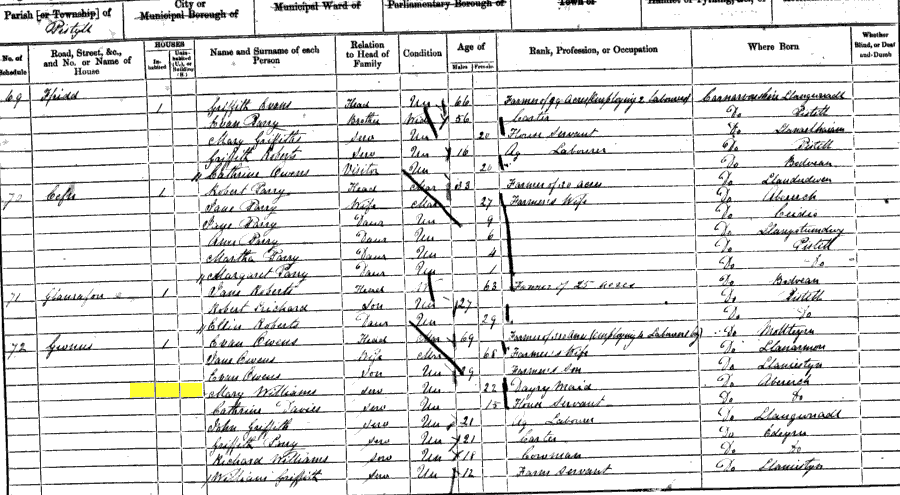 Parish [or Township] of
Pistyll
City or
Municipal Borough of
Municipal Ward of
Parliamentary Borough of
Town of
No. of Schedule
Road, Street, &c., and No. or Name of House
HOUSES
In-habited
Unin-habited (U.), or Building (B.)
Name and Surname of each Person
Relation to Head of Family
Condition
Age of
Males
Females
Rank, Profession, or Occupation
Where Born
Whether Blind, or Deaf-and-Dumb
69 Ffridd 1 Griffith Evans Head Un 66 Farmer of 99 Acres employing 2 labourers Carnarvonshire Llangwnadl
Evan Parry Brother 56 Carter Do Pistill
Mary Griffith Serv Un 20 House Servant Do
Griffith Roberts Serv Un 16 Ag Labourer Do Pistill
Cathrine Owens Visitor Un 20 Do Bodvean
70 1 Robert Parry Head Mar 33 Farmer of 20 acres Do
Jane Parry Wife Mar 27 Farmer's Wife Do Abererch
Parry Daur Un 9 Do Ceidio
Ann Parry Daur Un 6 Do Llanystumdwy
Martha Parry Daur Un 4 Do Pistill
Margaret Parry Daur Un 1 Do Do
71 Glanrafon 1 Jane Roberts Head 63 Farmer of 25 acres Do Bodvean
Robert Prichard Son Un 27 Do Pistill
Ellin Roberts Daur Un 29 Do Do
72 Gwnus 1 Evan Owens Head Mar 69 Farmer of employing Labourers Do
Jane Owens Wife Mar 68 Farmer's Wife Do Llanarmon
Evan Owens Son Un 29 Farmer's Son Do Llaniestyn
Mary Williams Serv Un 22 Dayry Maid Do Abererch
Cathrine Davies Serv Un 15 House Servant Do Do
John Griffith Serv Un 21 Ag Labourer Do Llangwnadl
Griffith Parry Serv Un 21 Carter Do Edeyrn
Richard Williams Serv Un 18 Cowman Do Do
William Griffith Serv Un 12 Farm Servant Do Llaniestyn